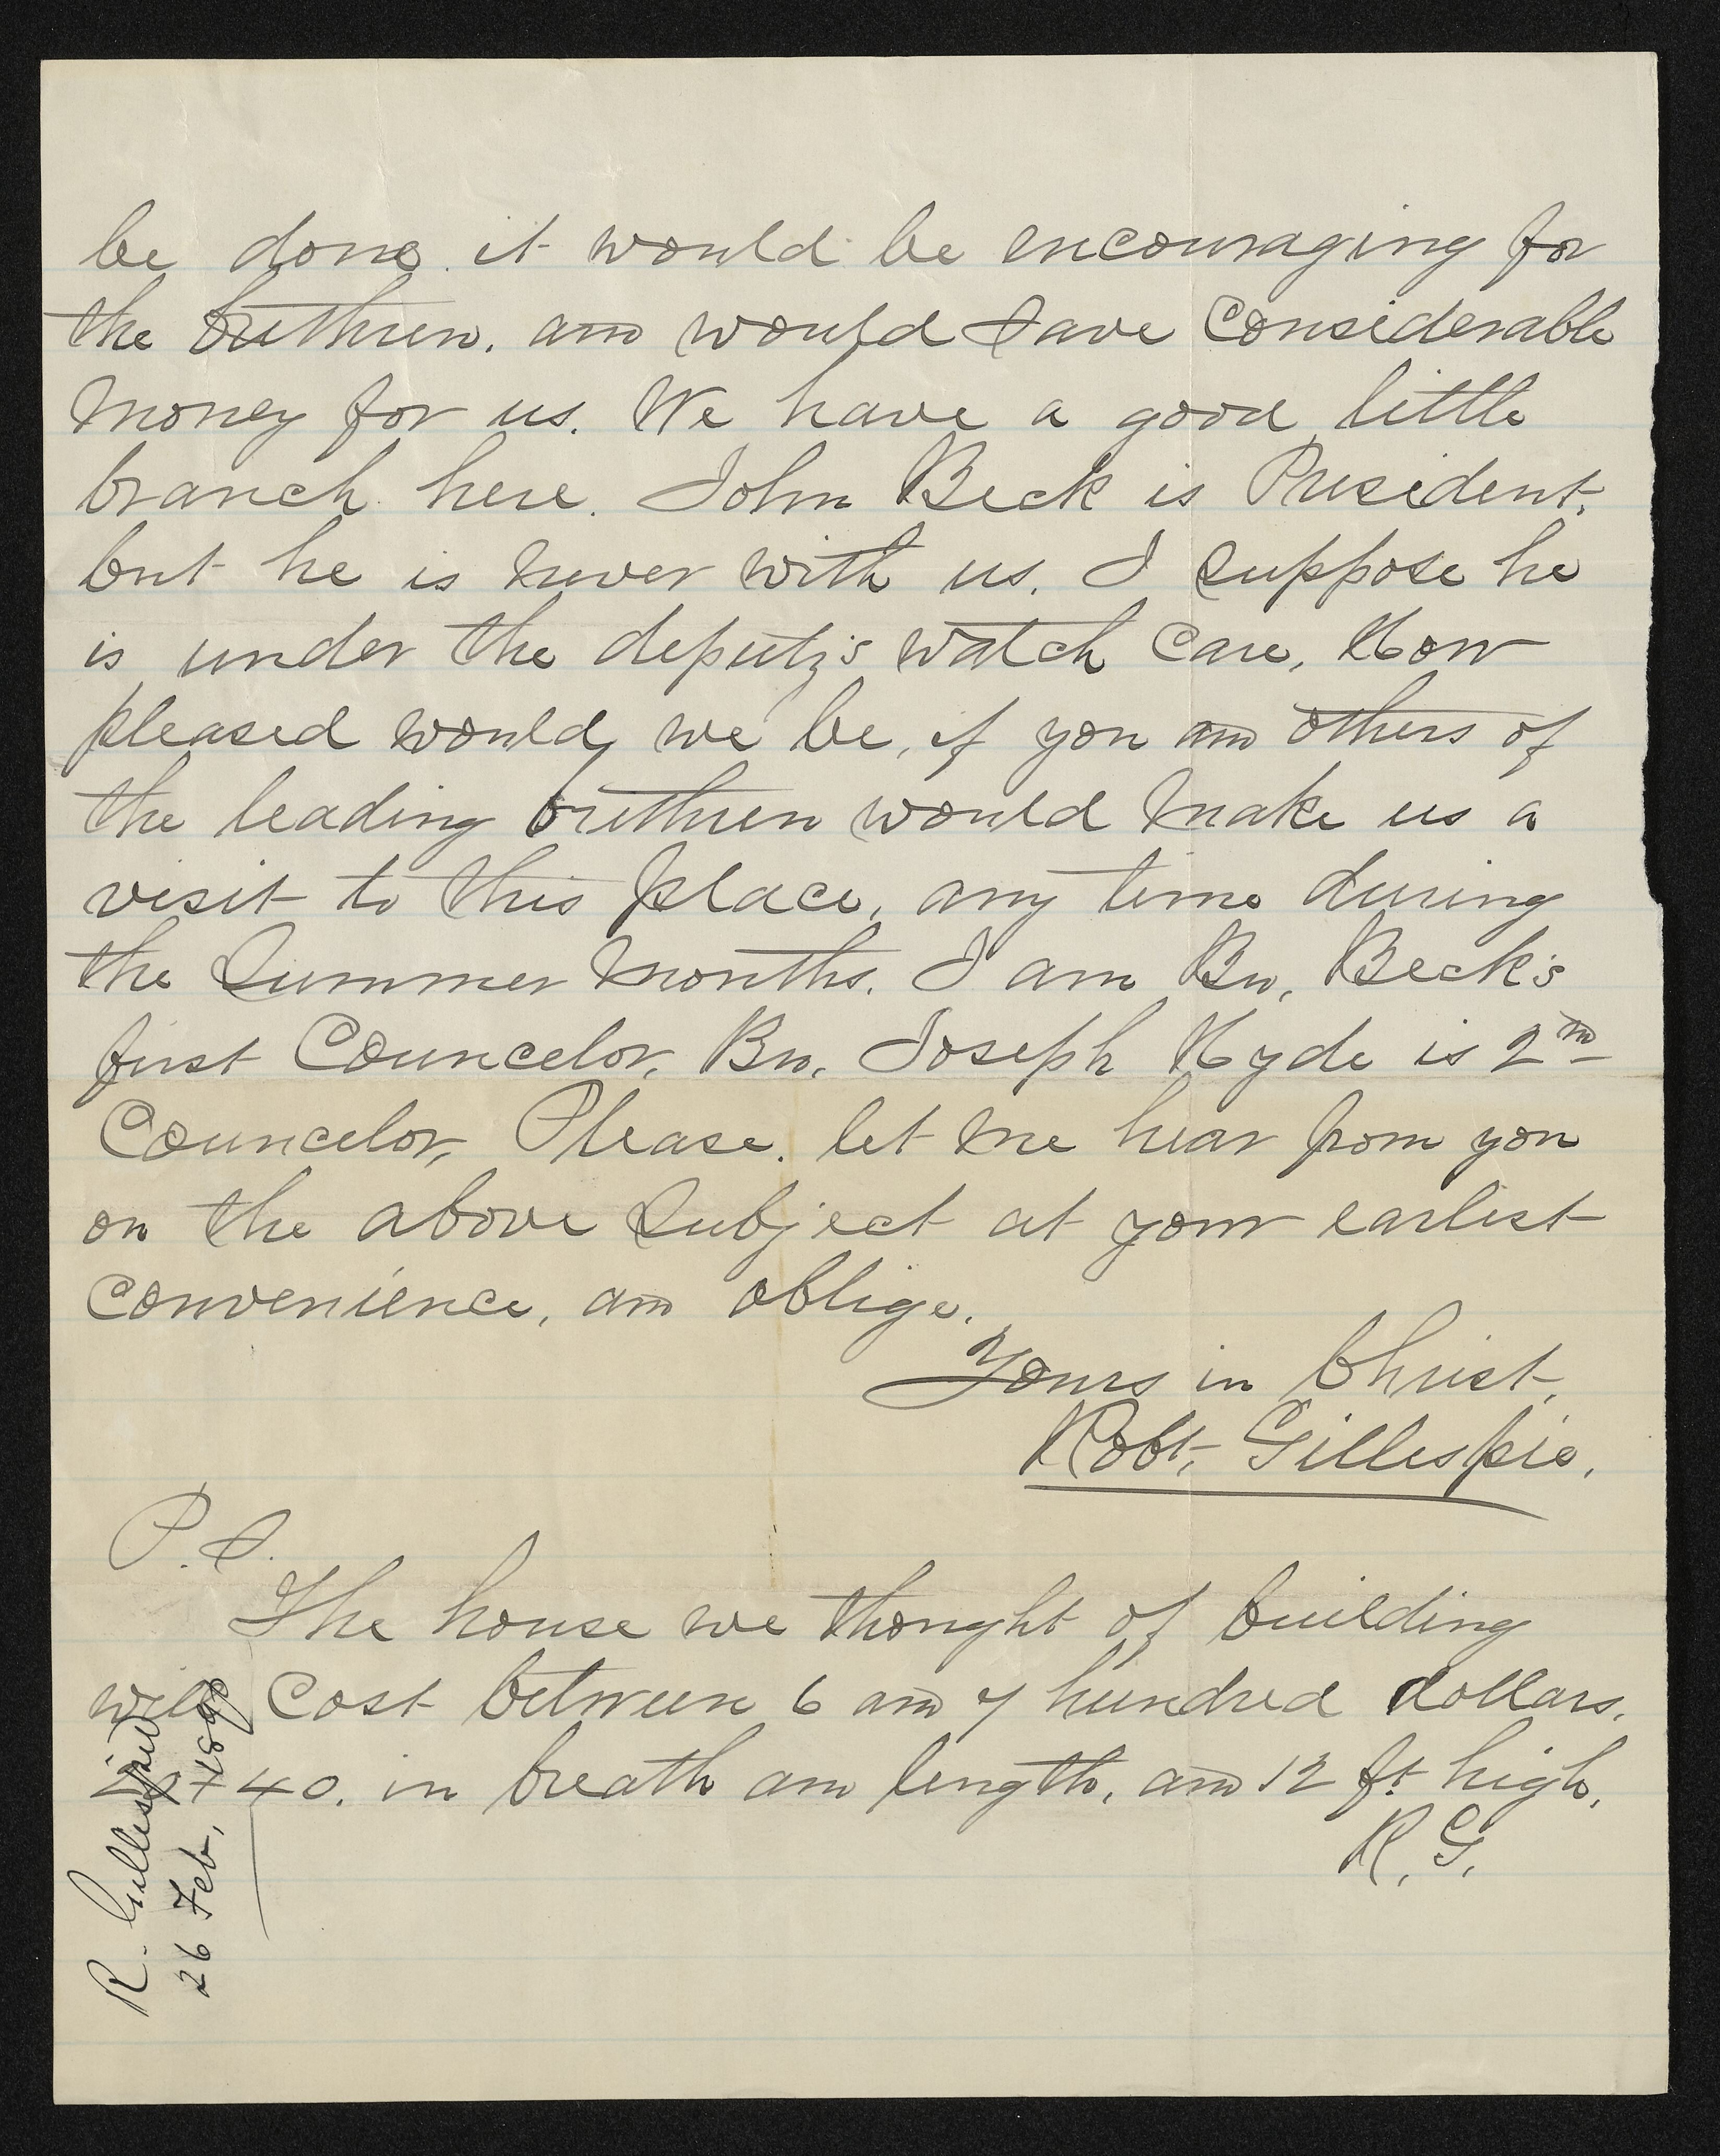 be done it would be encouraging for
the brethren, and would save considerable
money for us. We have a good little
branch here. John Beck is President,
but he is never with us. I suppose he
is under the deputy's watch care, How
pleased would we be, if you and others of
the leading brethren would make us a
visit to this place, any time during
the Summer months. I am Bro, Beck's
first Councelor, Bro, Joseph Hyde is 2nd
Councelor, Please. let me hear from you
on the above subject at your earliest
convenience, and oblige.
Yours in Christ,
Robt, Gillespie.
P.S.
The house we thought of building
will cost between 6 and 7 hundred dollars.
x 40. in breath and length, and 12 ft high,
R. G.
R. Gillespie
26 Feb, 1890